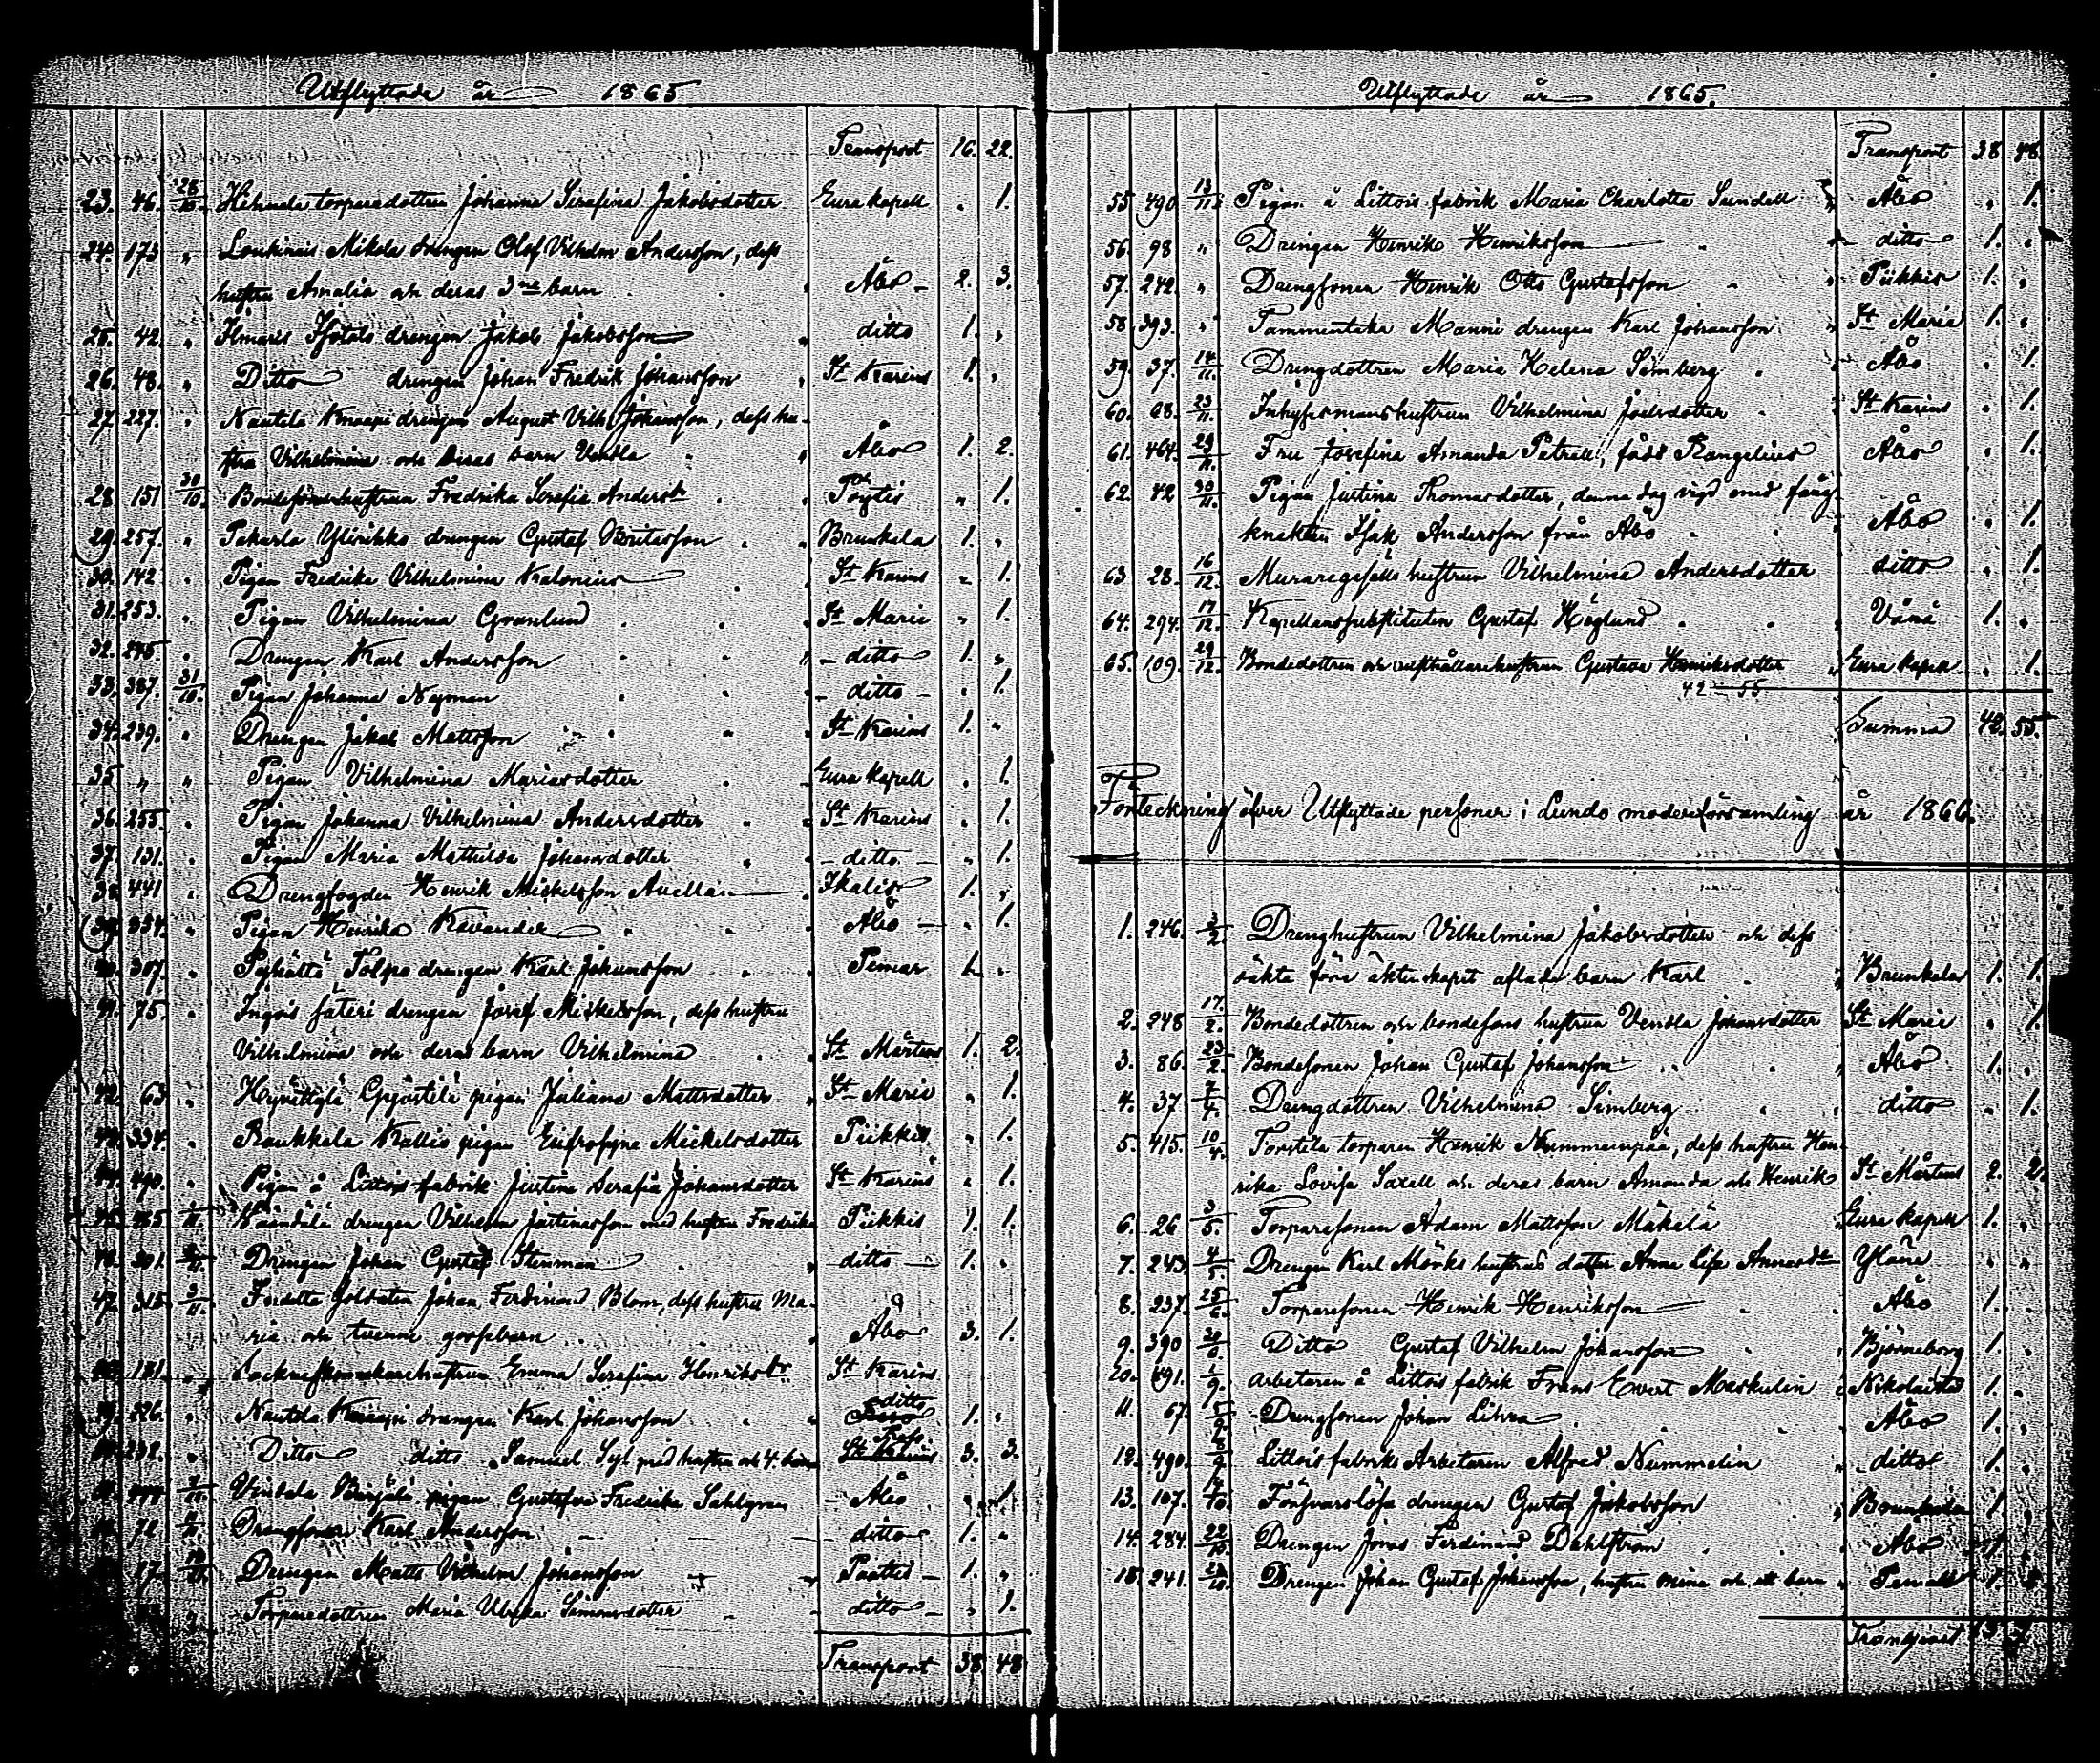 Utflyttade år 1865
Transport 16. 22.
23. 46. 28/10. torparedottren Johanna Serafina Jakobsdotter Eura kapell " 1.
24. 173 " Loukinais Mikola drängen Olof Vilhelm Andersson, dess
hustru Amalia och deras 3ne barn Åbo 2. 3.
25. 42. " Ilmaris Isotalo drengen Jakob Jakobsson ditto 1. "
26. 48. " Ditto drengen Johan Fredrik Johansson St Karins 1. "
27. 227. " Nautela Knaapi drengen August Vilh. Johansson, dess hu-
stru Vilhelmina och deras barn Vendla Åbo 1. 2.
28. 151 30/10. Fredrika Serafia Andersdr Pöytis " 1.
29. 257. " Pakurla Ylirikko drengen Gustaf Britasson Brunkala 1. "
30. 142 " Pigan Fredrika Vilhelmina Kalonius St Karins " 1.
31. 253. " Pigan Vilhelmina Granlund St Marie " 1.
32. 275. " Drengen Karl Andersson ditto 1. "
33. 387. 31/10. Pigan Johanna Nyman ditto " 1.
34. 239. " Drengen Jakob Mattsson St Karins 1. "
35 " " Pigan Vilhelmina Mariasdotter Eura kapell " 1.
36. 255. " Pigan Johanna Vilhelmina Andersdotter St Karins " 1.
37. 131. " Pigan Maria Mathilda Johansdotter ditto " 1.
38. 441 " Drengfogden Henrik Mickelsson Avellan Ikalis 1. "
Pigan Henrika Kavander Åbo " 1.
307. " Tolpo drengen Karl Johansson Pemar 1. "
41. 75. " Ingois säteri drengen Josef Mickelsson, dess hustru
Vilhelmina och deras barn Vilhelmina St Mårtens 1. 2.
42. 63 " pigan Juliana Mattsdotter St Marie " 1.
334. " Raukkala Kallio pigan Eufrosyne Mickelsdotter Piikkis " 1.
490. " Pigan å Littois fabrik Justina Serafia Johansdotter St Karins " 1.
drengen Vilhelm Justinasson med hustru Fredrika Piikkis 1. 1.
Drengen Johan Gustaf Stenman ditto 1. "
47. 315. 3/11. Soldaten Johan Ferdinand Blom, dess hustru Ma-
ria och tvenne gossebarn Åbo 3. 1.
131. " Emma Serafina Henriksdr St Karins
226. " Nautela Knaapi drengen Karl Johansson ditto 1. "
232. " Ditto ditto Samuel med hustru och 4 barn 3. 3.
pigan Gustafva Fredrika Sahlgren Åbo " 1.
72 Drengsonen Karl Andersson ditto 1. "
Drengen Matts Vilhelm Johansson Paattis 1. "
Torparedottren Maria Ulrika Simonsdotter ditto " 1.
Transport 38. 48
Utflyttade år 1865.
Transport 38 48.
55 490. 13/11. Pigan å Littois fabrik Maria Charlotta Sundell Åbo " 1.
56. 98 " Drengen Henrik Henriksson ditto 1. "
57. 242. " Drengsonen Henrik Otto Gustafsson Piikkis 1. "
58. 393. " Tammentaka Manni drengen Karl Johansson St Maria 1. "
59. 37. 14/11. Drengdottren Maria Helena Simberg Åbo " 1.
60. 68. 23/11. Inhysesmanshustrun Vilhelmina Joelsdotter St Karins " 1.
61. 464. 29/11. Fru Josefina Amanda Petrell, född Rangelius Åbo " 1.
62. 42 30/11. Pigan Justina Thomasdotter, denna dag vigd med fång-
knekten Isak Andersson från Åbo Åbo " 1.
63 28. 16/12. Muraregesälls hustrun Vilhelmina Andersdotter ditto " 1.
64. 294. 17/12. Kapellanssubstituten Gustaf Höglund Vånå 1. "
65. 109. 29/12. Bondedottren och rusthållarehustrun Gustava Henriksdotter Eura kapell " 1.
42 – 55
Summa 42. 55.
Förteckning öfver Utflyttade personer i Lundo moderförsamling år 1866.
1. 246. 3/2. Drenghustrun Vilhelmina Jakobsdotter och dess
oäkta före äktenskapet aflade barn Karl Brunkala 1. 1.
2. 248 17/2. Bondedottren och bondesons hustrun Vendla Johansdotter St Marie " 1.
3. 86. 23/2. Bondesonen Johan Gustaf Johansson Åbo 1. "
4. 37 7/4. Drengdottren Vilhelmina Simberg ditto " 1.
5. 415. 10/4. Torstila torparen Henrik Nummenpää, dess hustru Hen-
rika Lovisa Saxell och deras barn Amanda och Henrik St Mårtens 2. 2.
6. 26 3/5. Torparesonen Adam Mattsson Mäkelä Eura kapell 1. "
7. 243. 4/5. Drengen Karl Mörks hustrus dotter Anna Lisa Annasdr Yläne " "
8. 237. 25/6. Torparesonen Henrik Henriksson Åbo 1. "
9. 390 Ditto Gustaf Vilhelm Johansson Björneborg 1. "
10. 491. 1/9. Arbetaren å Littois fabrik Frans Evert Maskulin Nikolaistad 1. "
11. 67. Drengsonen Johan Lihra Åbo 1. "
12. 490. Littois fabriks Arbetaren Alfred Nummelin ditto 1. "
13. 107. Försvarslösa drengen Gustaf Jakobsson Brunkala 1. "
14. 284. 22/10. Drengen Jonas Ferdinand Dahlström Åbo 1. "
15. 241. Drengen Johan Gustaf Johansson, hustru Mina och ett barn
Transport